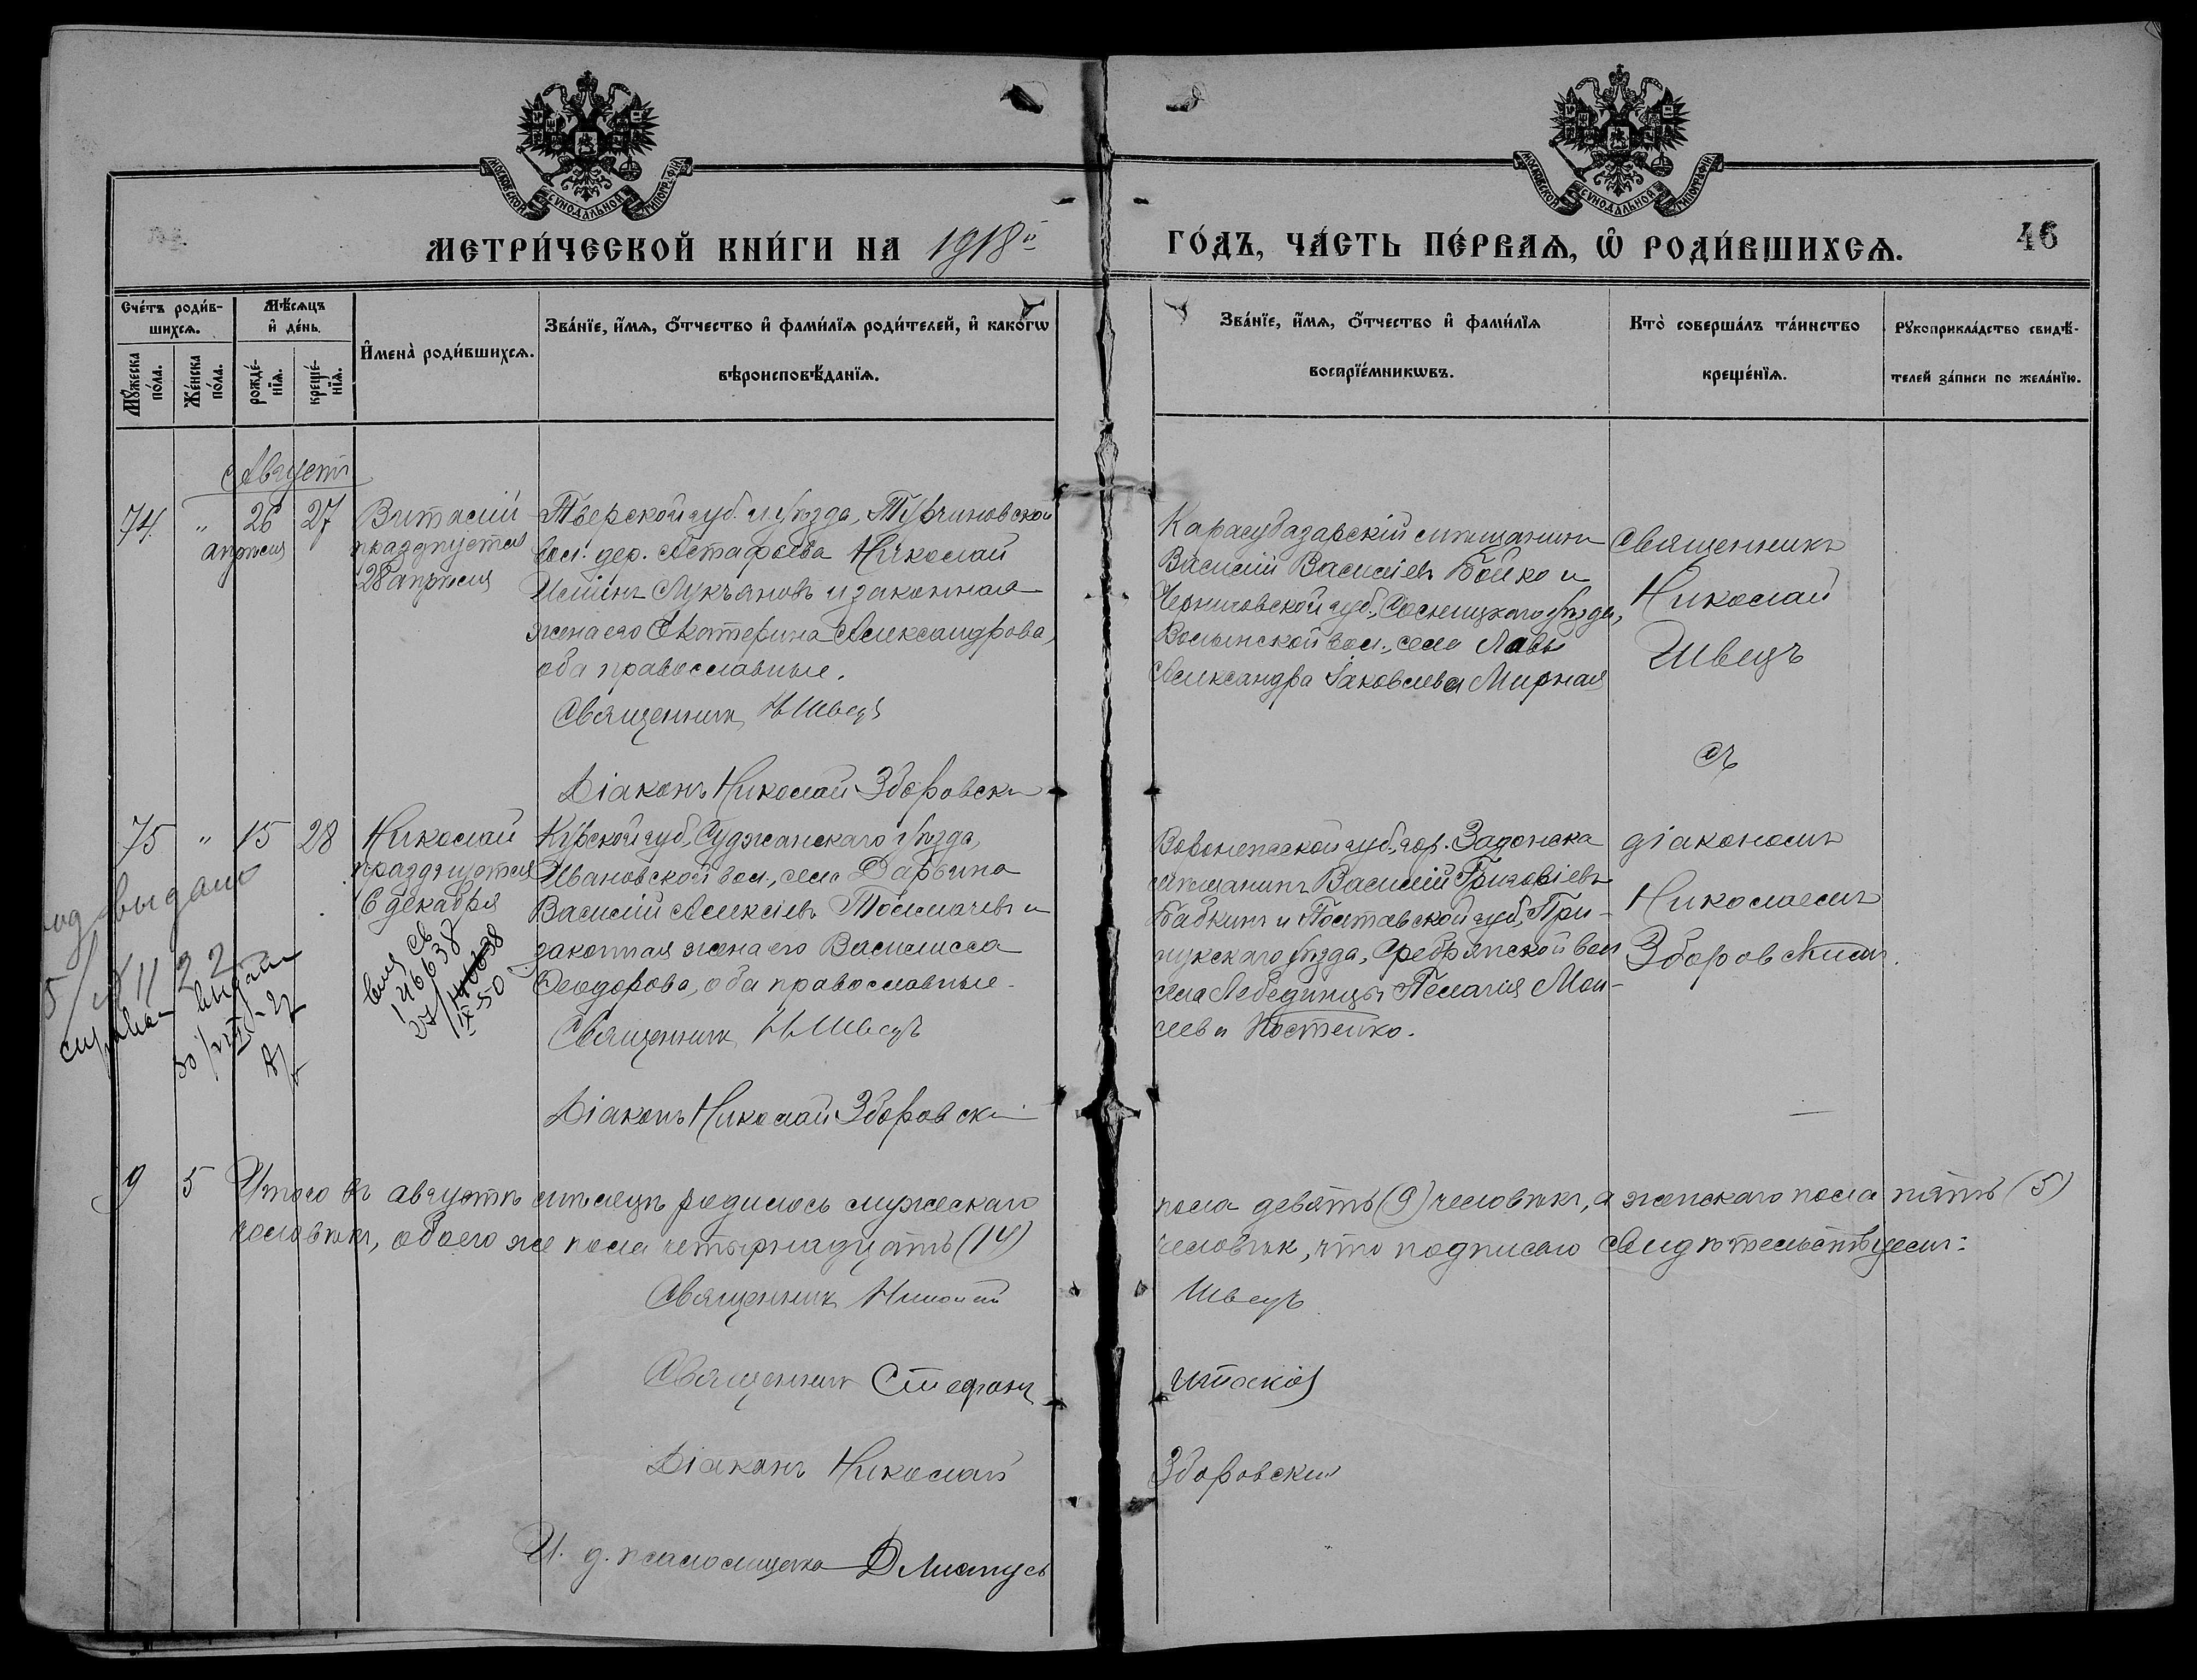 МОСКОВСКОЙ СѴНОДАЛЬНОЙ ТИПОГРАФІИ
МОСКОВСКОЙ СѴНОДАЛЬНОЙ ТИПОГРАФІИ
МЕТРИ́ЧЕСКОЙ КНИ́ГИ НА 1918й
ГО́ДЪ, ЧА́СТЬ ПЕ́РВАѦ, Ѡ РОДИ́ВШИХСѦ.
46
Сче́тъ роди́в-
шихсѧ.
Мꙋ́жеска
по́ла.
Же́нска
по́ла.
Мѣ́сѧцъ
и҆ де́нь.
рожде́-
нїѧ.
креще́-
нїѧ.
И҆мена̀ роди́вшихсѧ.
Зва́нїе, и҆́мѧ, ѻ҆́тчество и҆ фами́лїѧ роди́телей, и҆ како́гѡ
вѣроисповѣ́данїѧ.
Зва́нїе, и҆́мѧ, ѻ҆́тчество и҆ фами́лїѧ
воспрїе́мникѡвъ.
Кто̀ соверша́лъ та́инство
креще́нїѧ.
Рꙋкоприкла́дство свидѣ́-
телей за́писи по жела́нїю.
Августъ
74. " 26 27
апрѣля
Виталій
празднуется
28 апрѣля
Тверской губ. и уѣзда, Тургиновской
вол. дер. Астафьева Николай
Ильинъ Лукьяновъ и законная
жена его Екатерина Александрова,
оба православные.
Священникъ Н Швецъ
Діаконъ Николай Зборовскі
Карасубазарскій мѣщанинъ
Василій Василіевъ Бойко и
Черниговской губ., Сосницкаго уѣзда,
Волынской вол., села Лавы
Александра Іаковлева Мирная
Священникъ
Николай
Швецъ
съ
75 " 15 28
Николай
празднуется
6 декабря
Курской губ., Суджанскаго уѣзда,
Ивановской вол., села Дарьина
Василій Алексіевъ Толмачевъ и
законная жена его Василисса
Ѳеодорова, оба православные.
Священникъ Н Швецъ
Діаконъ Николай Зборовскі
Воронежской губ., гор. Задонска
мѣщанинъ Василій Григоріевъ
Бабкинъ и Полтавской губ., При-
лукскаго уѣзда, Сребрянской вол
села Лебединцы Пелагія Мои-
сеева Костенко.
діакономъ
Николаемъ
Зборовскимъ.
выдано
22
выдана
9 5 Итого въ августѣ мѣсяцѣ родилось мужескаго
пола девять (9) человѣкъ, а женскаго пола пять (5)
человѣкъ, обоего же пола четырнадцать (14)
человѣк, что подписью свидѣтельствуемъ:
Священникъ Николай Швецъ
Священникъ Стефанъ
Діаконъ Николай Зборовскій
И. д. псаломщика